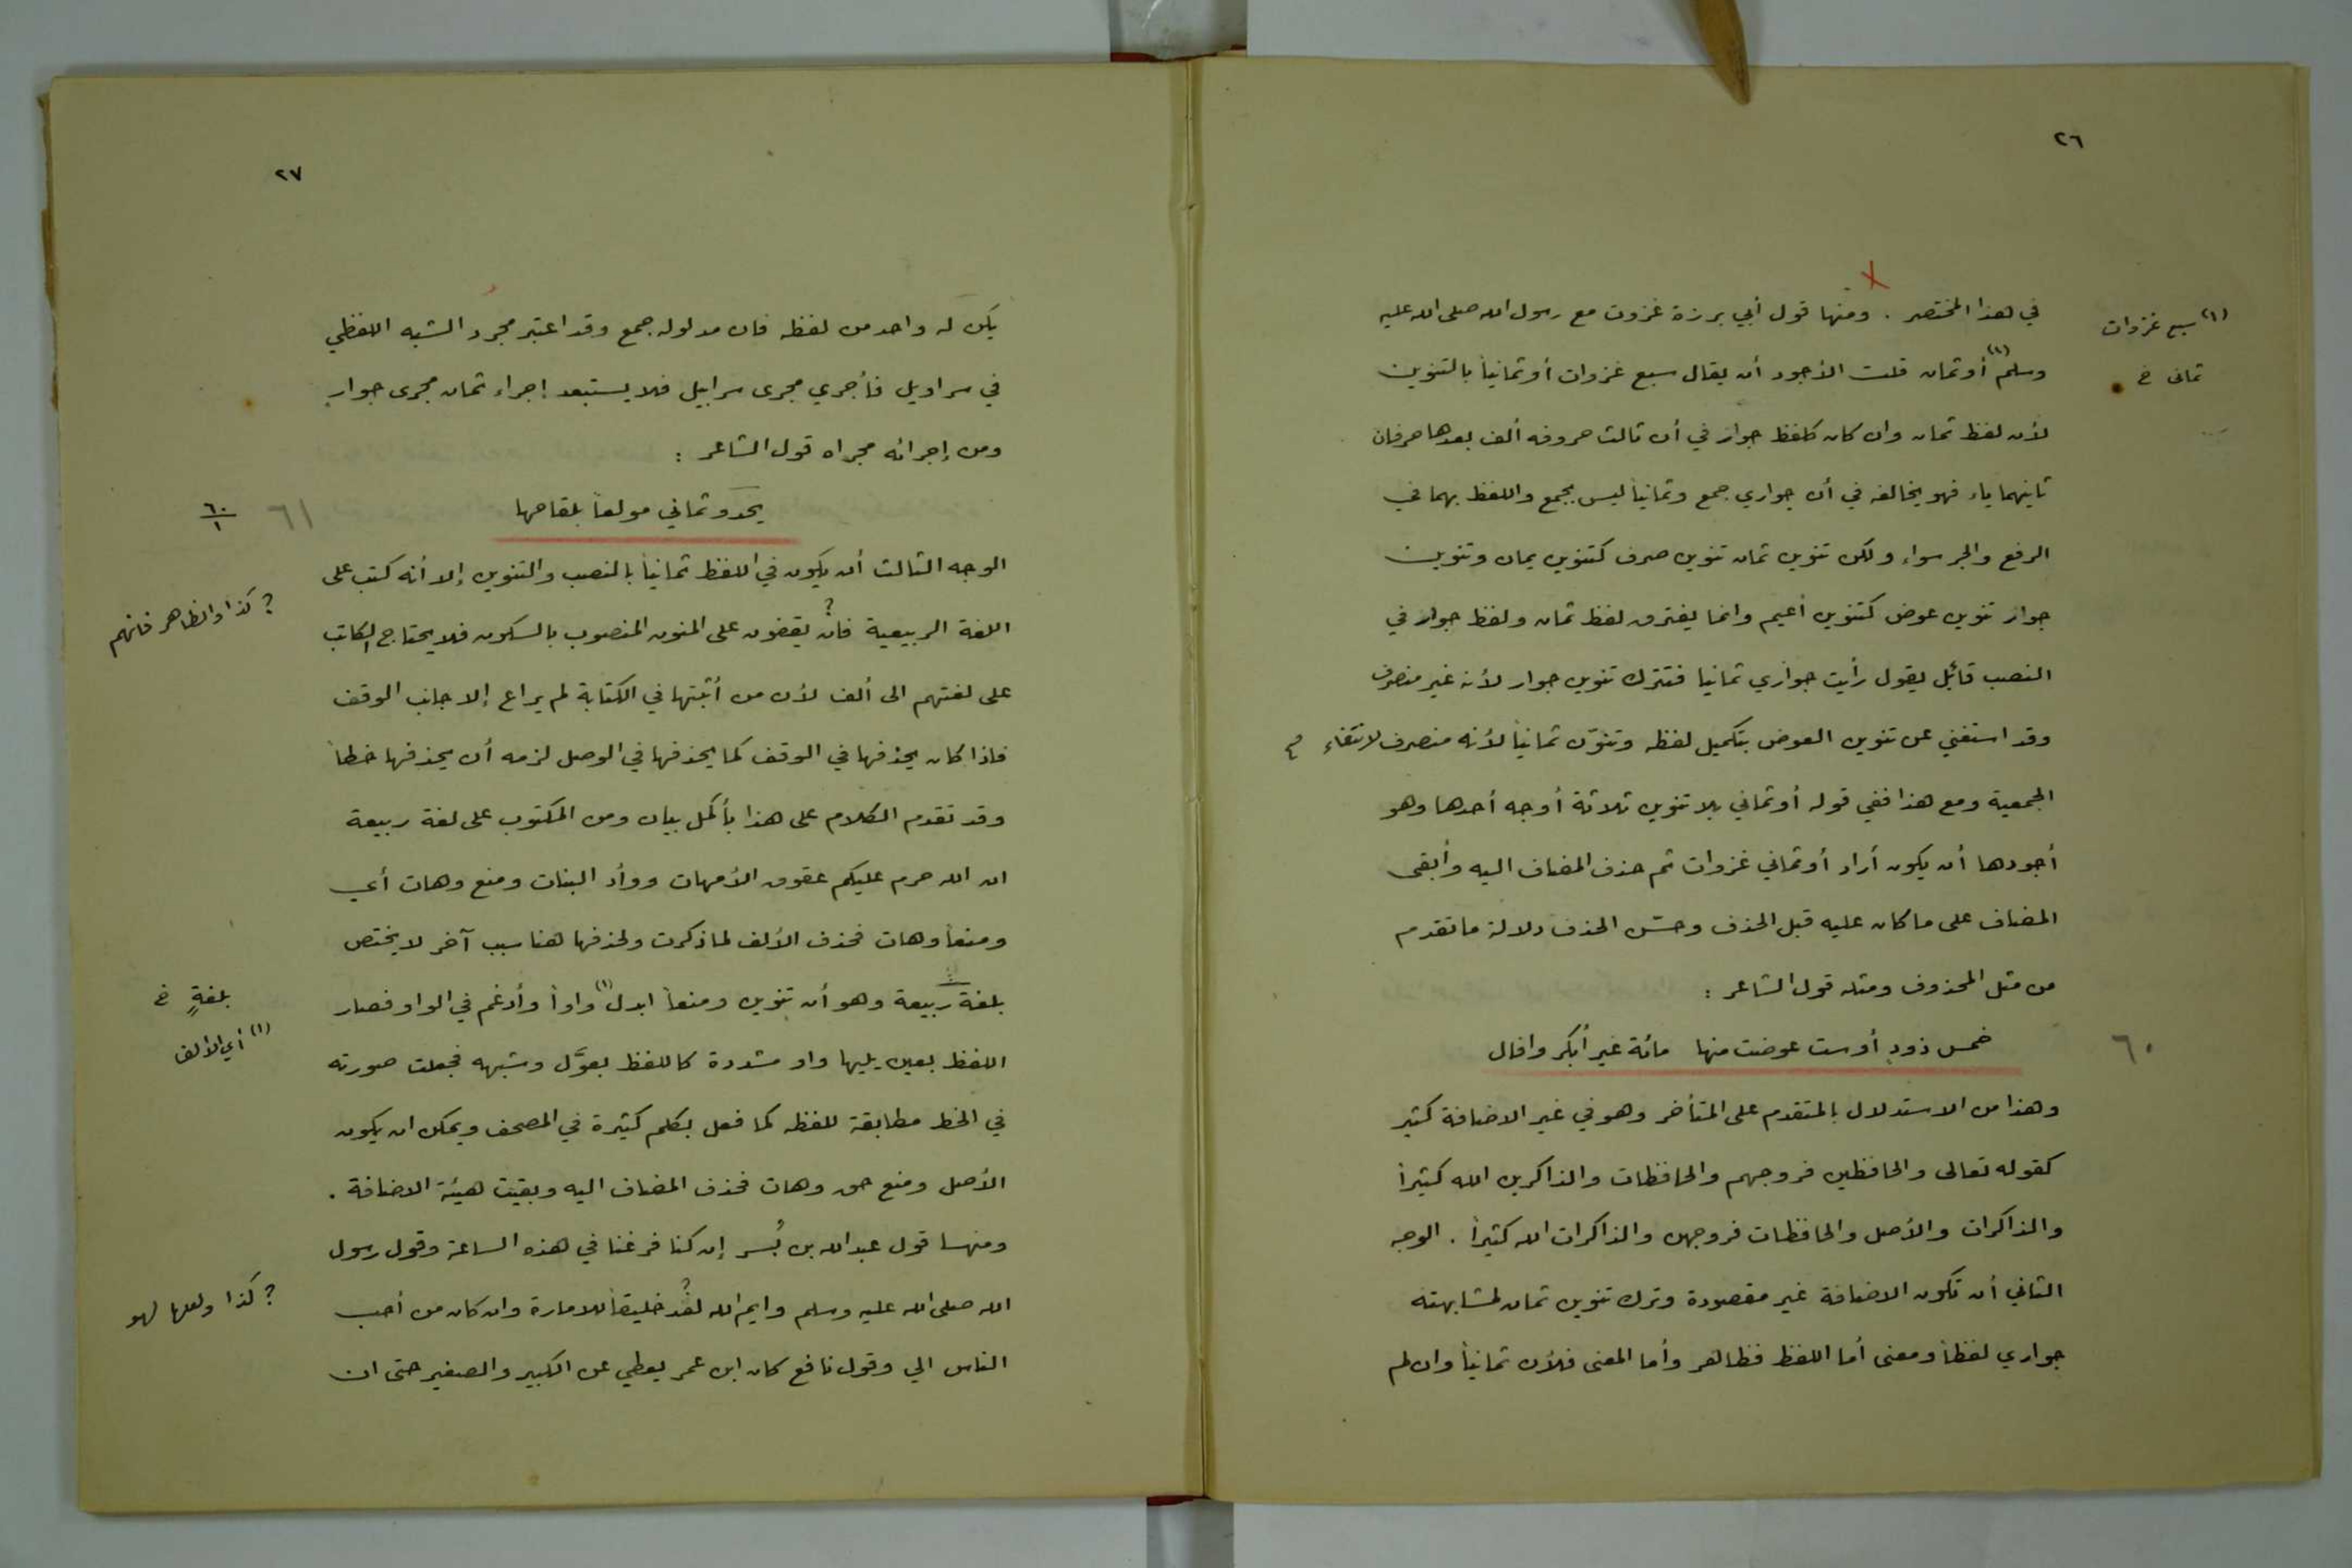 ٢٦
في هذا المختصر . ومنها قول أبي برزة غزوت مع رسول الله صلى الله عليه
(١) سبع غزوات
وسلم (١) أو ثمان قلت الأجود أن يقال سبع غزوات أو ثمانياً بالتنوين
ثمانى خ
لأن لفظ ثمان وان كان كلفظ جوار في أن ثالث حروفه ألف بعدها حرفان
ثانيهما ياء فهو يخالفه في أن جواري جمع وثمانياً ليس بجمع واللفظ بهما في
الرفع والجر سواء ولكن تنوين ثمان تنوين صرف كتنوين يمان وتنوين
جوار تنوين عوض كتنوين أعيم وانما يفترق لفظ ثمان ولفظ جوار في
النصب قائل يقول رأيت جواري ثمانيا فتترك تنوين جوار لأنه غير منصرف
وقد استغني عن تنوين العوض بتكميل لفظه وتنوّن ثمانياً لأنه منصرف لانتفاء
الجمعية ومع هذا ففي قوله أو ثماني بلا تنوين ثلاثة أوجه أحدها وهو
أجودها أن يكون أراد أو ثماني غزوات ثم حذف المضاف اليه وأبقى
المضاف على ما كان عليه قبل الحذف وحسّن الحذف دلالة ما تقدم
من مثل المحذوف ومثله قول الشاعر :
خمس ذودٍ أو ست عوضت منها مائة غير أبكر وافال
٦٠
وهذا من الاستدلال بالمتقدم على المتأخر وهو في غير الاضافة كثير
كقوله تعالى والحافظين فروجهم والحافظات والذاكرين الله كثيراً
والذاكرات والأصل والحافظات فروجهن والذاكرات الله كثيراً . الوجه
الثاني أن تكون الاضافة غير مقصودة وترك تنوين ثمان لمشابهته
جواري لفظاً ومعنى أما اللفظ فظاهر وأما المعنى فلأن ثمانياً وان لم
٢٧
يكن له واحد من لفظه فان مدلوله جمع وقد اعتبر مجرد الشبه اللفظي
في سراويل فأجري مجرى سرابيل فلا يستبعد إجراء ثمان مجرى جوار
ومن إجرائه مجراه قول الشاعر :
يحدو ثماني مولعاً بلقاحها
٦١
٦٠
١
الوجه الثالث أن يكون في اللفظ ثمانياً بالنصب والتنوين إلا أنه كتب على
اللغة الربيعية فان؟ يقفون على المنون المنصوب بالسكون فلا يحتاج الكاتب
؟ كذا والظاهر فانهم
على لغتهم الى ألف لأن من أثبتها في الكتابة لم يراع إلا جانب الوقف
فاذا كان يحذفها في الوقف كما يحذفها في الوصل لزمه أن يحذفها خطاً
وقد تقدم الكلام على هذا بأكمل بيان ومن المكتوب على لغة ربيعة
ان الله حرم عليكم عقوق الأمهات ووأد البنات ومنع وهات أي
ومنعاً وهات فحذف الألف لما ذكرت ولحذفها هنا سبب آخر لا يختص
بلغة ربيعة وهو أن تنوين ومنعاً ابدل (١) واواً وأدغم في الواو فصار
بلغةٍ خ
(١) أي الألف
اللفظ بعين يليها واو مشددة كاللفظ بعوَّل وشبهه فجعلت صورته
في الخط مطابقة للفظه كما فعل بكلم كثيرة في المصحف ويمكن ان يكون
الأصل ومنع حق وهات فحذف المضاف اليه وبقيت هيئة الاضافة .
ومنها قول عبد الله بن بُسر إن كنا فرغنا في هذه الساعة وقول رسول
الله صلى الله عليه وسلم وايم الله لقد؟ خليقاً للامارة وان كان من أحب
؟ كذا ولعلها لهو
الناس الي وقول نافع كان ابن عمر يعطي عن الكبير والصغير حتى ان